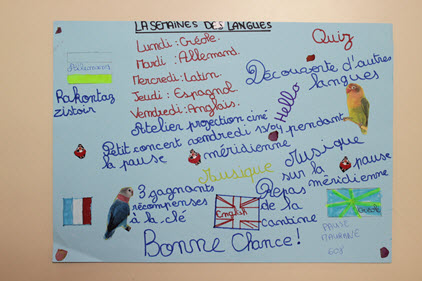 LA SEMAINES DES LANGUES
Lundi : Créole.
Mardi : Allemand.
Mercredi : Latin.
Jeudi : Espagnol
Vendredi : Anglais.
Quiz
Découverte d'autres
langues
Rakontaz
zistoir
Hello
Atelier projection ciné
Petit concert vendredi 13/04 pendant
la pause méridienne
Musique
Musique
sur la pause
méridienne
3 gagnants
récompenses
à la clé
English
Repas
de la
cantine
Créole
PAUSE
Bonne Chance !